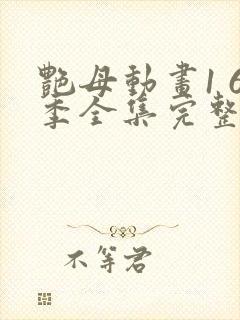 艷母動畫1 6
季全集完整
不等君